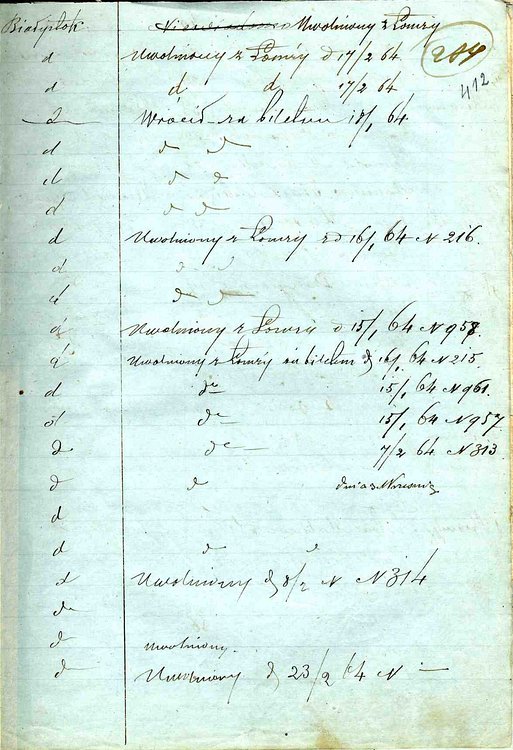 Białystok Niewiadomo Uwolniony z Łomży
204
412
d Uwolniony z Łomży d 17/2 64
d d d 17/2 64
d Wrócił za biletem 18/1 64.
d d d
d d d
d d d
d Uwolniony z Łomży d 16/1 64 N 216.
d d d
d d d
d Uwolniony z Łomży d 15/1 64 N 958.
d Uwolniony z Łomży za biletem d 16/1 64 N 215.
d do 15/1 64 N 961.
d do 15/1 64 N 957
d do 7/2 64 N 313
d d dnia 3 Września
d
d d d
d Uwolniony d 8/2 N N 314
do
d Uwolniony.
d Uwolniony d 23/2 64 N —